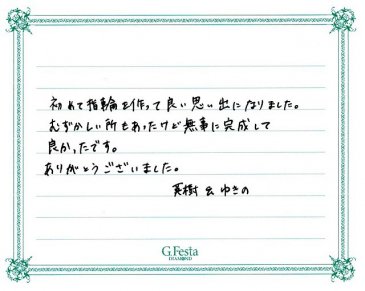 初めて指輪を作って良い思い出になりました。
むずかしい所もあったけど無事に完成して
良かったです。
ありがとうございました。
英樹 & ゆきの
G.Festa
DIAMOND